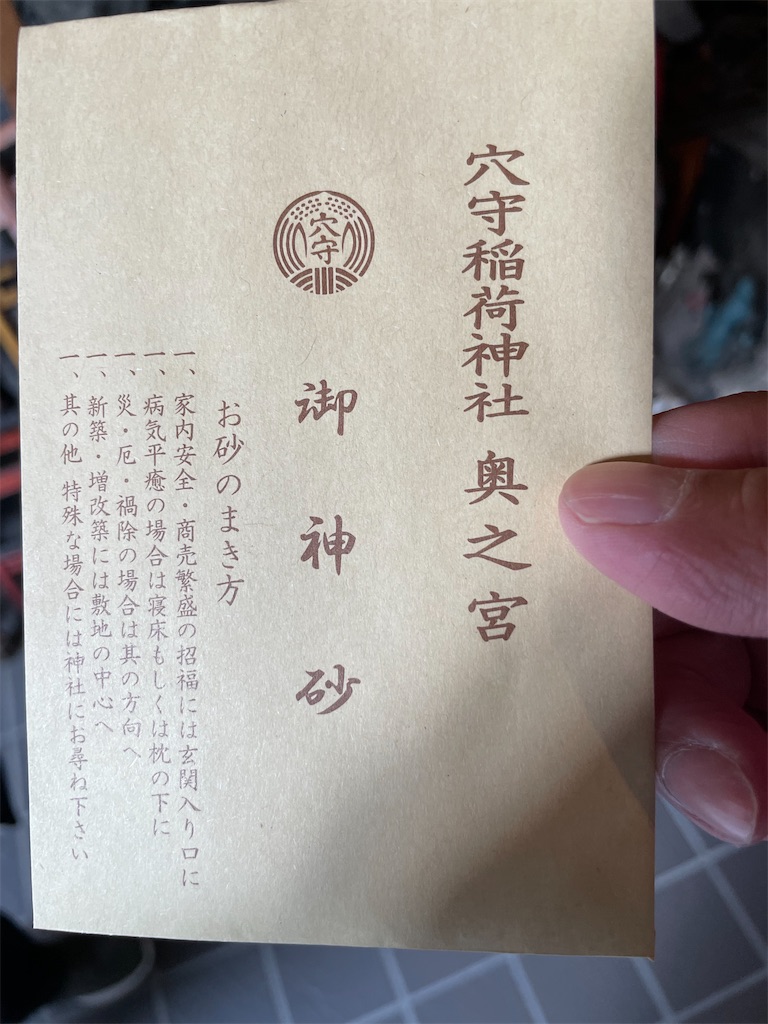 穴守稲荷神社 奥之宮
穴守
御神砂
お砂のまき方
一、家内安全・商売繁盛の招福には玄関入り口に
一、病気平癒の場合は寝床もしくは枕の下に
一、災・厄・禍除の場合は其の方向へ
一、新築・増改築には敷地の中心へ
一、其の他 特殊な場合には神社にお尋ね下さい